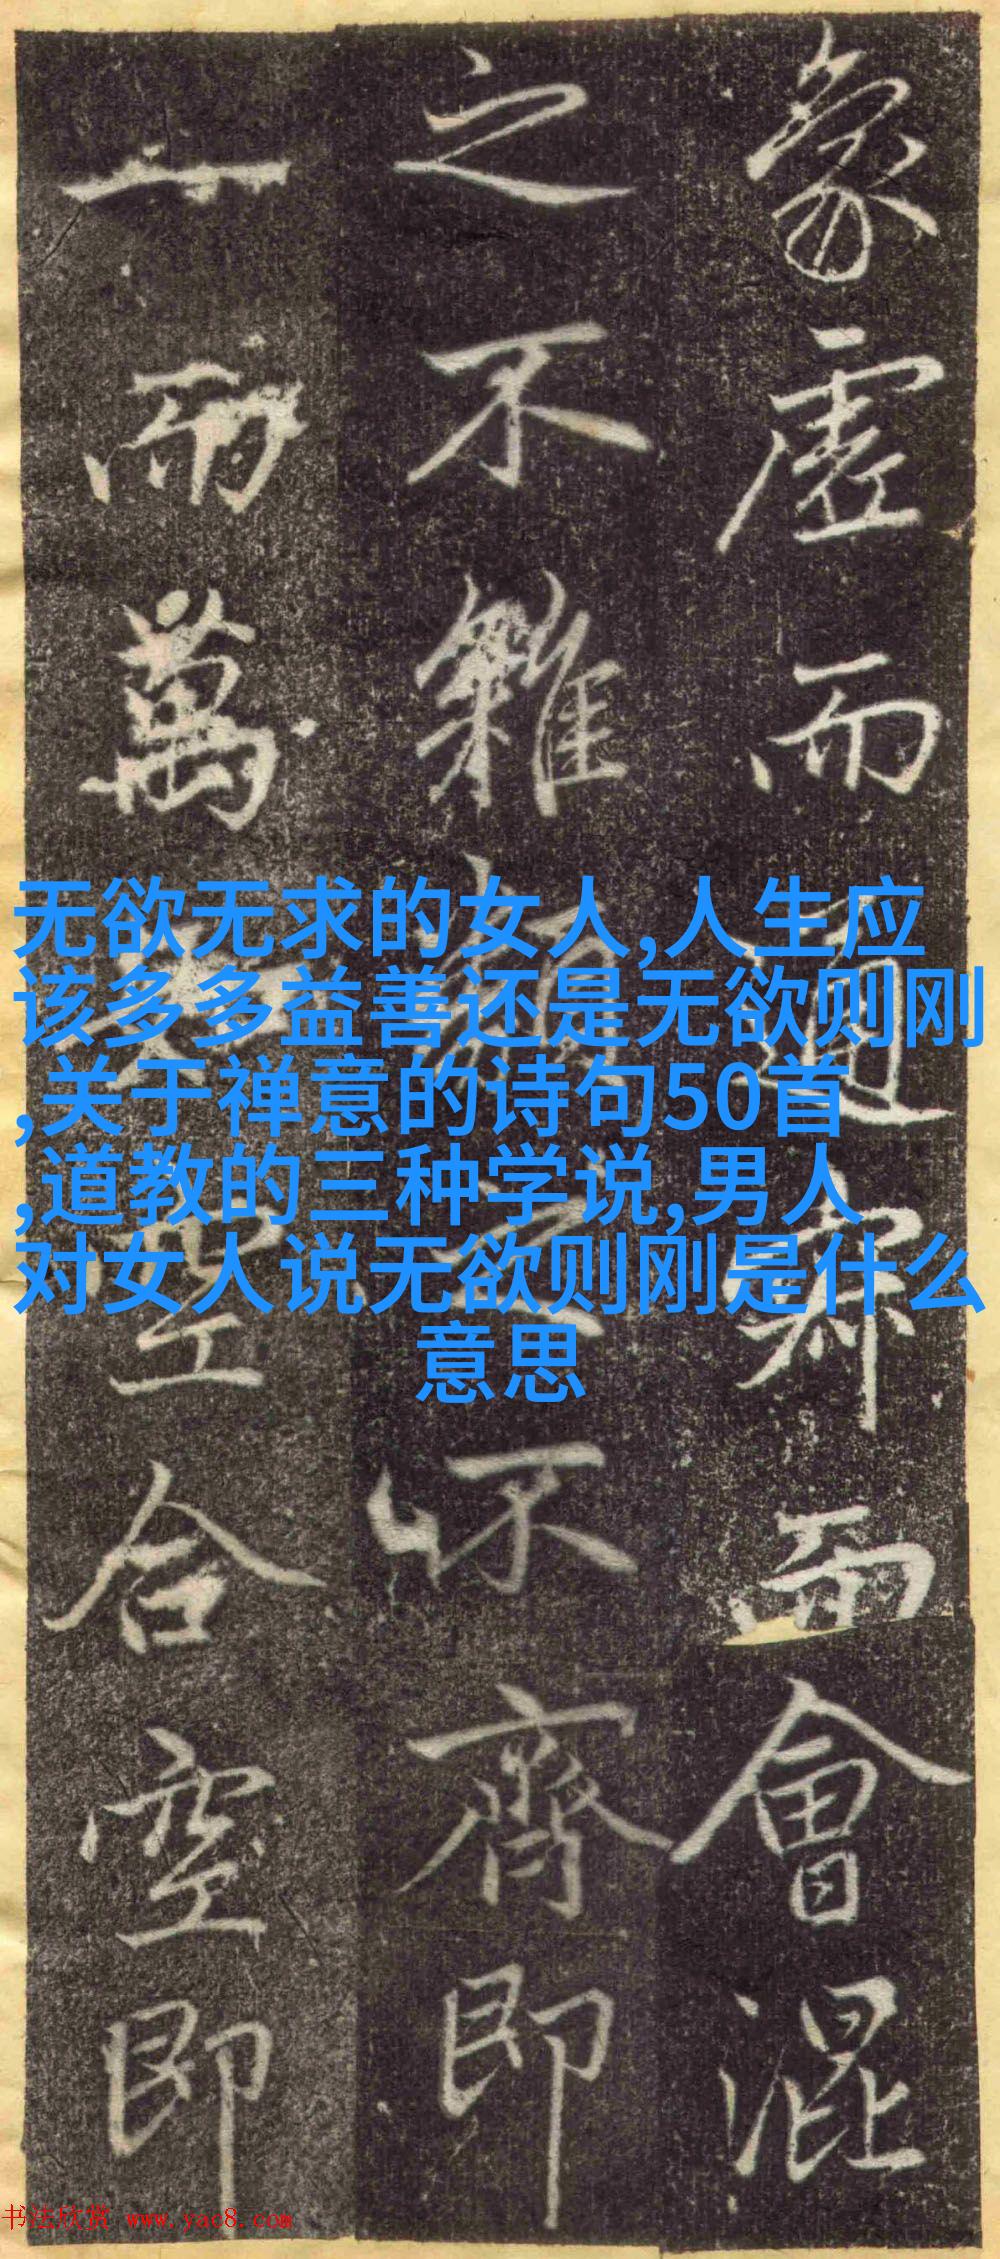 象虛而通寂而會混
之不雜類之不齊即
一而萬空合空即
无欲无求的女人,人生应
该多多益善还是无欲则刚
,关于禅意的诗句50首
,道教的三种学说,男人
对女人说无欲则刚是什么
意思
书法欣赏 www.yac8.com